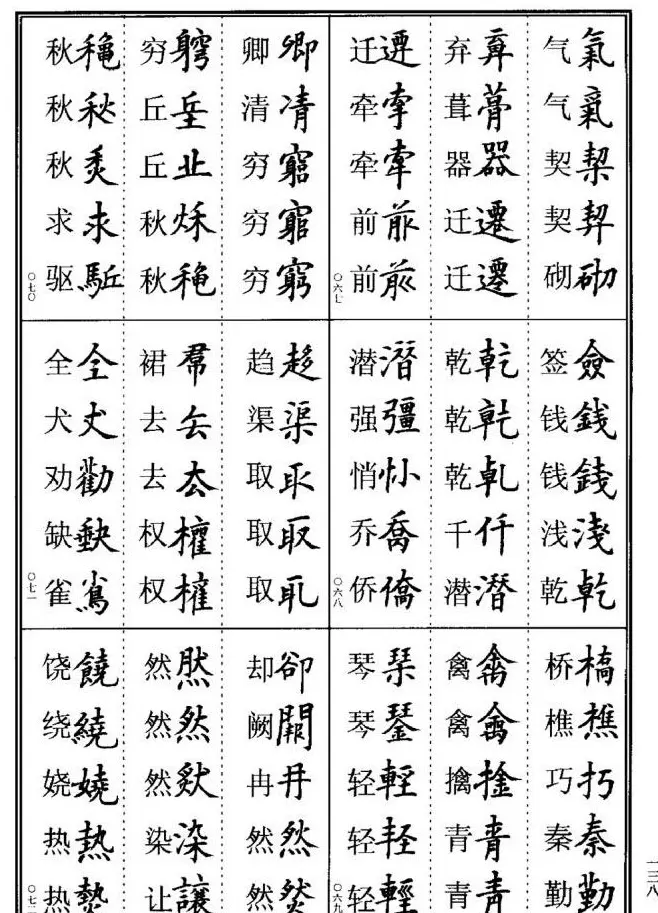 气氣
气氣
契栔
契契
砌砌
弃弃
葺葺
器器
迁遷
迁遷
迁遷
牵牽
牵牽
前前
前前
〇六七
签僉
钱錢
钱錢
浅淺
乾乾
乾乾
乾乾
乾乹
千仟
潜潜
潜潛
强彊
悄悄
乔喬
侨僑
〇六八
桥槁
樵樵
巧巧
秦秦
勤勤
禽禽
禽禽
擒捦
青青
青青
琴琹
琴琴
轻輕
轻軽
轻輕
〇六九
卿卿
清凊
穷窮
穷窮
穷窮
穷竆
丘坵
丘丘
秋秌
秋秋
秋龝
秋秋
秋秋
求求
驱駈
〇七〇
趋趍
渠渠
取取
取取
取取
裙帬
去去
去去
权權
权權
全全
犬犬
劝勸
缺缺
雀雀
〇七一
却卻
阙闕
冉冉
然然
然然
然然
然然
然然
染染
让讓
饶饒
绕繞
娆嬈
热熱
热熱
〇七二
一三八